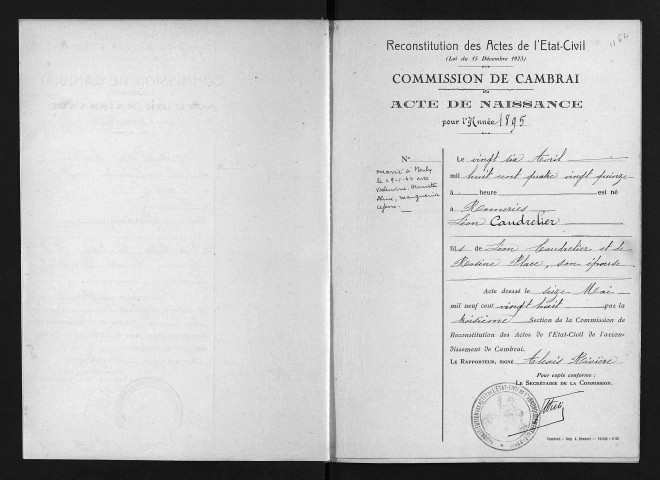 1164
Reconstitution des Actes de l'Etat-Civil
(Loi du 15 Décembre 1923)
COMMISSION DE CAMBRAI
ACTE DE NAISSANCE
pour l'Année 1895
N°
marié à
le 29-1-44 avec
Valentine, Henriette
Marguerite
Lefevre.
Le vingt six Avril
mil huit cent quatre vingt quinze
à heure est né
à
Léon Caudrelier
fils de Léon Caudrelier et de
Rosine Place, son épouse
Acte dressé le seize Mai
mil neuf cent vingt huit par la
troisième Section de la Commission de
Reconstitution des Actes de l'Etat-Civil de l'arron-
dissement de Cambrai.
LE RAPPORTEUR, SIGNÉ Alexis Rivière
Pour copie conforme :
LE SECRÉTAIRE DE LA COMMISSION,